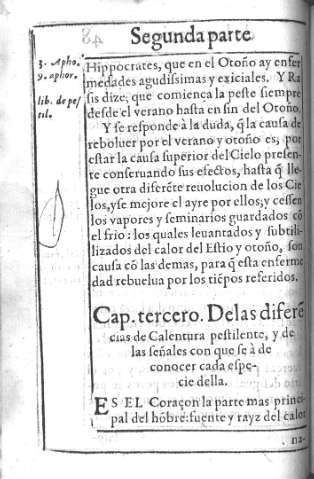 Segunda parte
3. Apho.
9. aphor.
lib. de pes
til.
Hippocrates, que en el Otoño ay enfer
medades agudissimas y exiciales. Y Ra
sis dize, que comiença la peste siempre
desde el verano hasta en fin del Otoño.
Y se responde à la duda, q̃ la causa de
reboluer por el verano y otoño es, por
estar la causa superior del Cielo presen-
te conseruando sus efectos, hasta q̃ lle-
gue otra diferẽte reuolucion de los Cie
los, y se mejore el ayre por ellos; y cessen
los vapores y seminarios guardados cõ
el frio: los quales leuantados y subtili-
lizados del calor del Estio y otoño, son
causa cõ las demas, para q̃ esta enferme
dad rebuelua por los tiẽpos referidos.
Cap. tercero. De las diferẽ
cias de Calentura pestilente, y de
las señales con que se à de
conocer cada espe-
cie della.
ES EL Coraçon la parte mas princi-
pal del hõbre: fuente y rayz del calor
na-